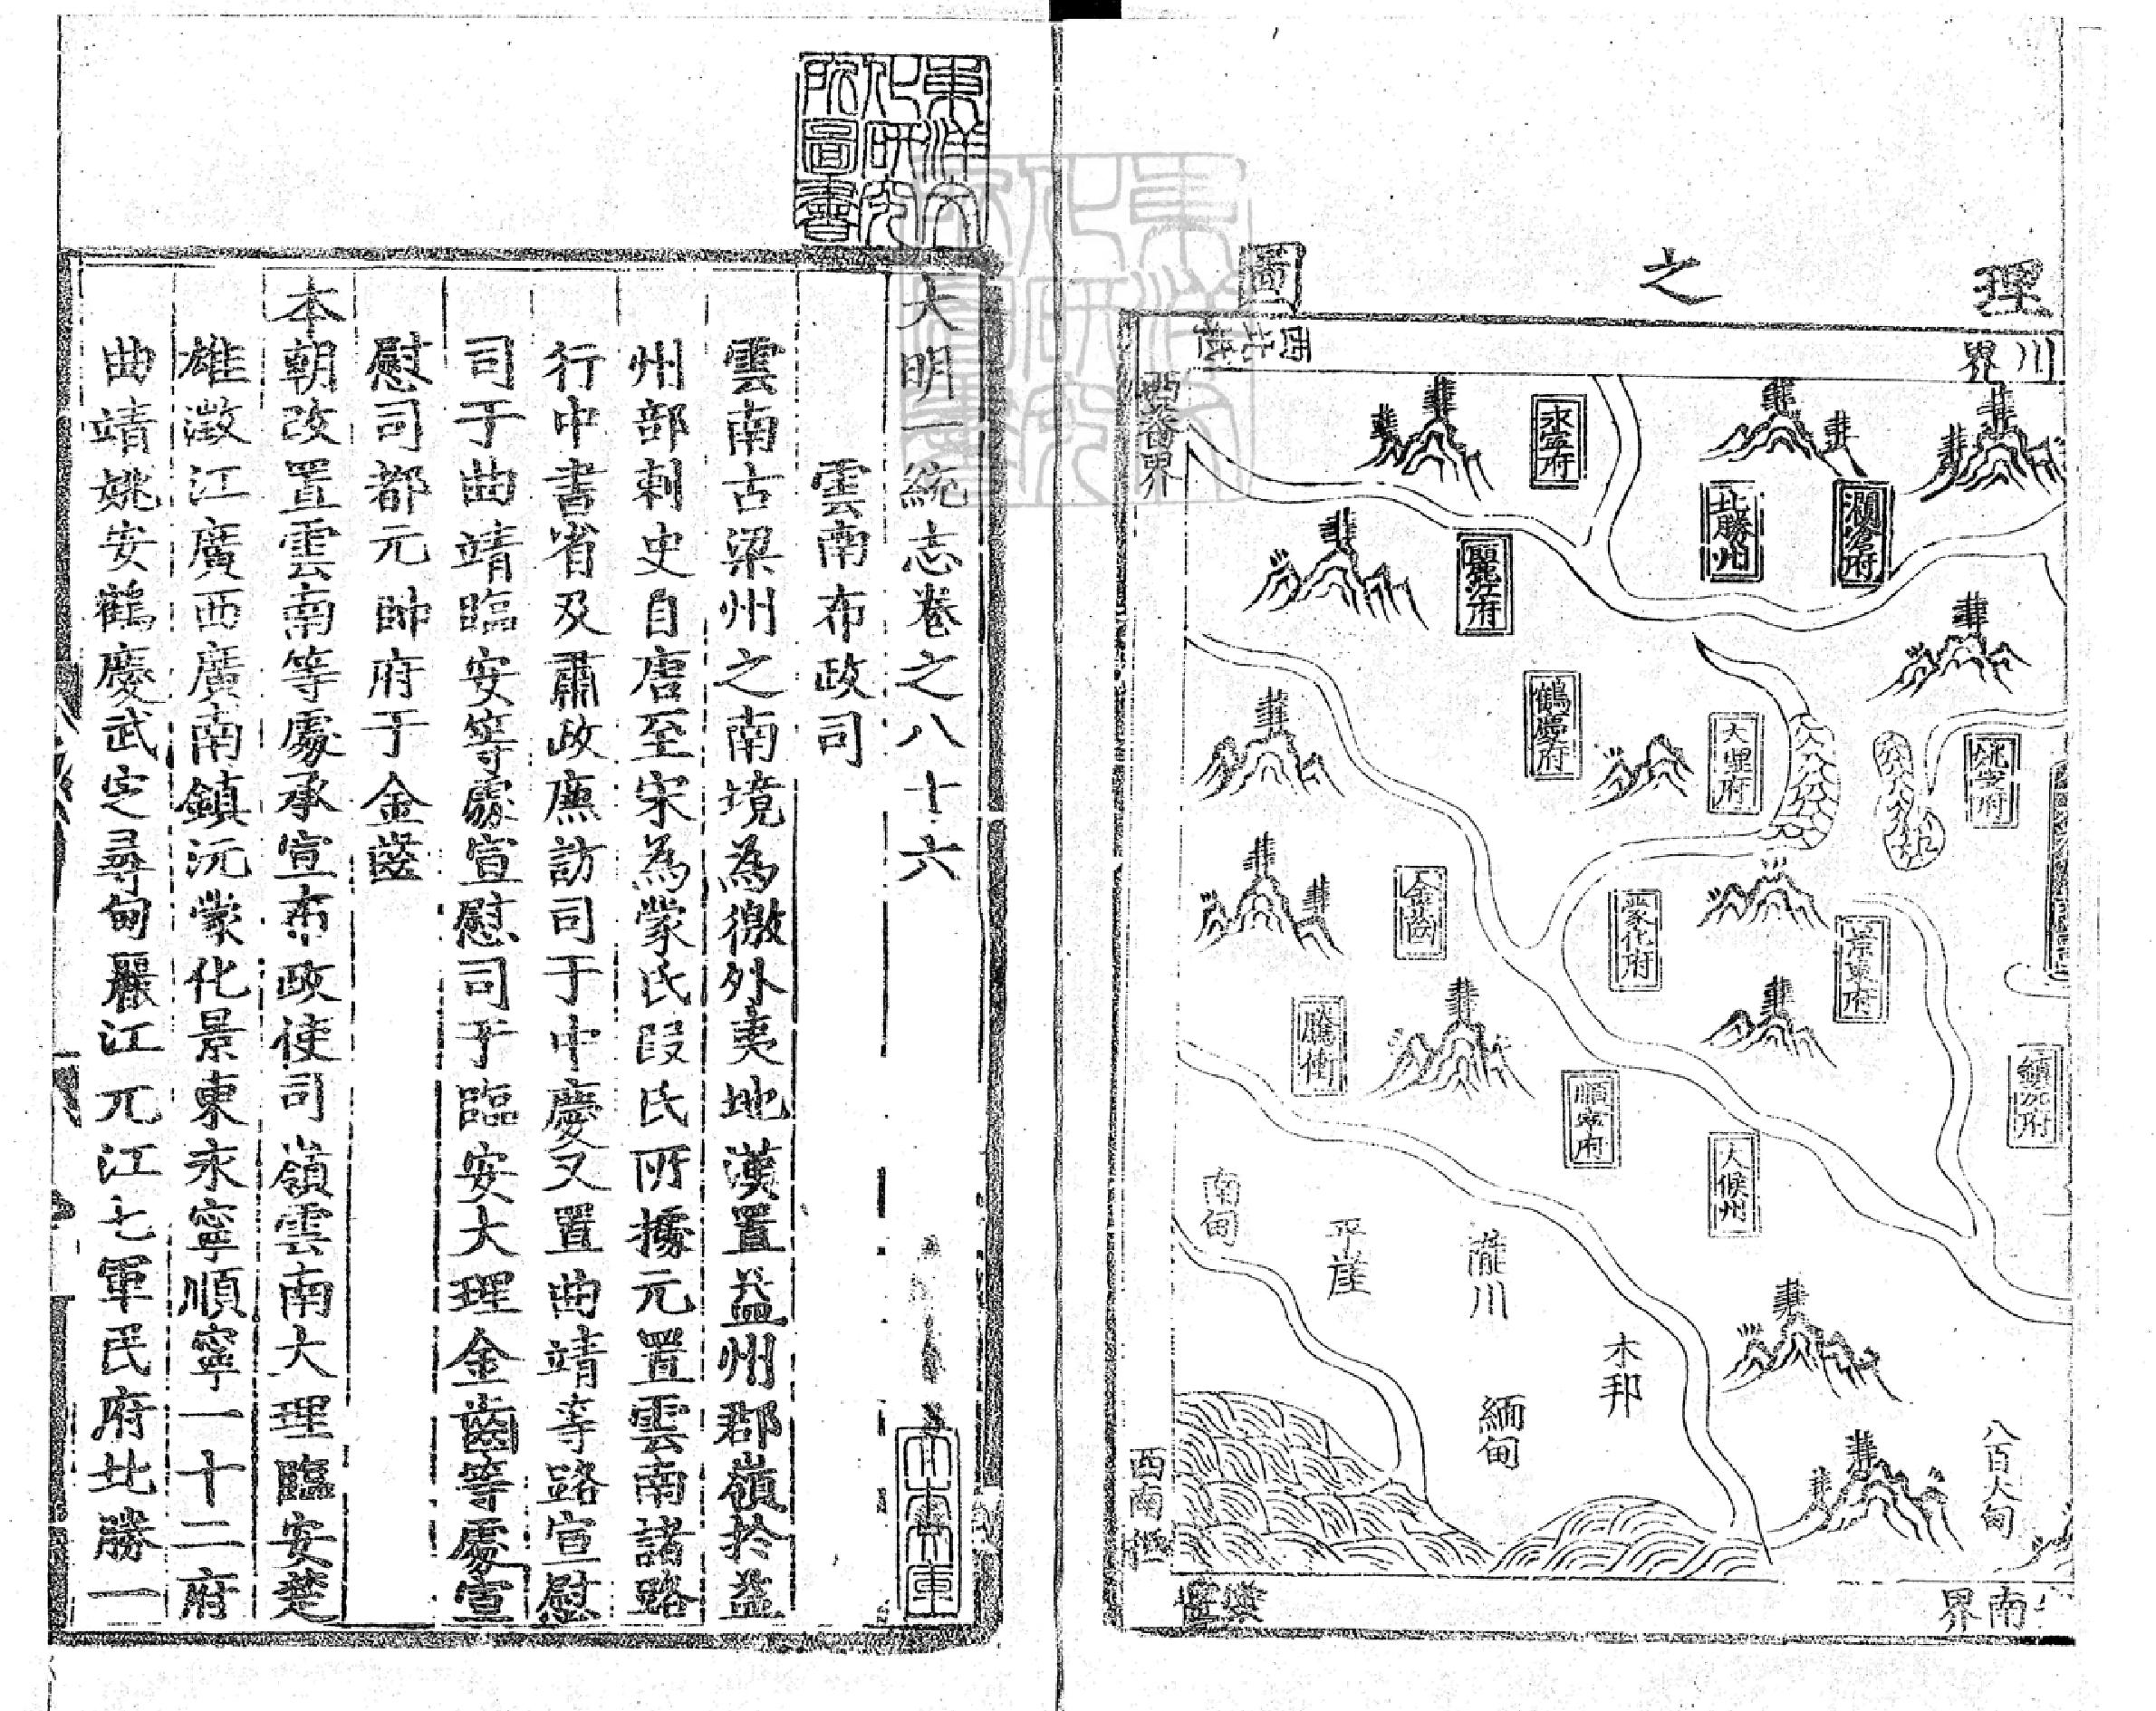 理之圖
川界
西番界
永寧府
北勝州
瀾滄府
麗江府
鶴慶府
大理府
姚安府
金齒
蒙化府
景東府
騰衝
順寧府
大候州
鎮沅府
南甸
平崖
隴川
木邦
緬甸
八百大甸
西南
南界
東洋文化研究所圖書
大明一統志卷之八十六
雲南布政司
雲南古梁州之南境為徼外夷地漢置益州郡嶺於益
州部刺史自唐至宋為蒙氏段氏所㩀元置雲南諸路
行中書省及肅政廉訪司于中慶又置曲靖等路宣慰
司于曲靖臨安等處宣慰司于臨安大理金齒等處宣
慰司都元帥府于金齒
本朝改置雲南等處承宣布政使司嶺雲南大理臨安楚
雄澂江廣西廣南鎮沅蒙化景東永寧順寧一十二府
曲靖姚安鶴慶武定尋甸麗江元江七軍民府北勝一